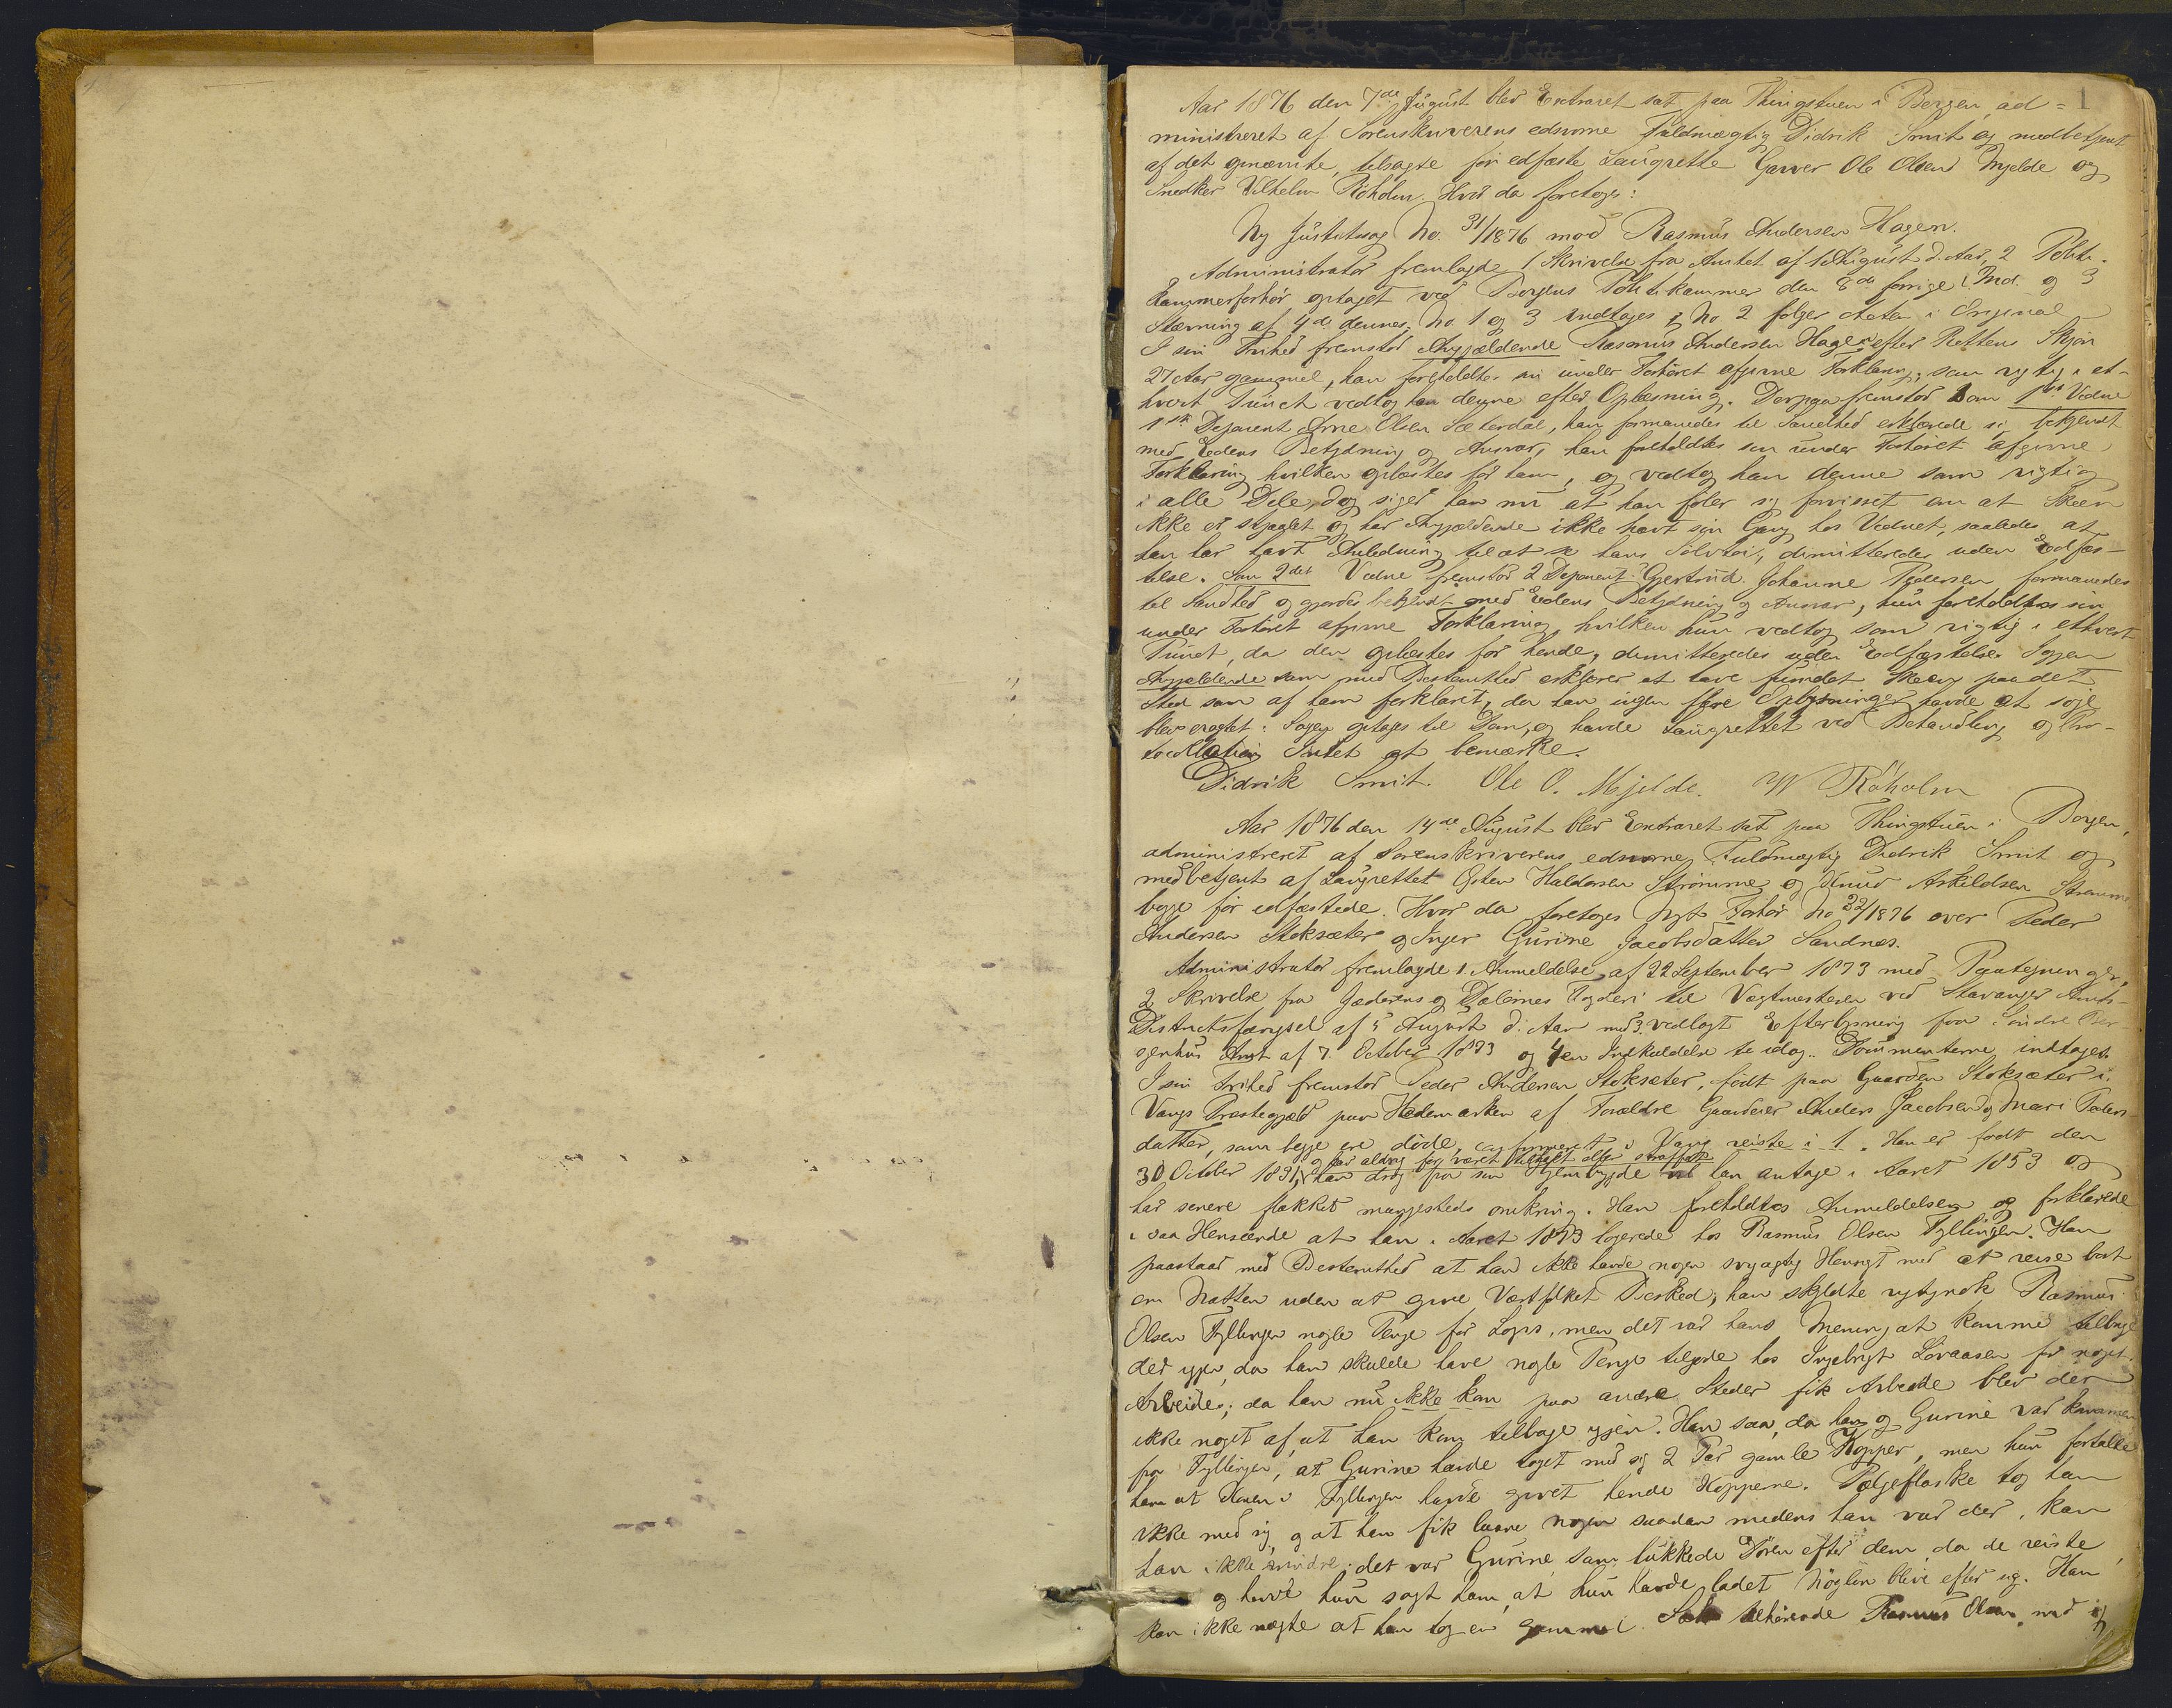 Aar 1876 den 7de August blev Extraret sat paa Thingstuen i Bergen, ad= 1
ministreret af Sorenskriverens edsvorne Fuldmægtig Didrik Smit og medbetjent
af det opnævnte, tilsagte før edfæste Laugrette Garver Ole Olsen Mjelde og
Snedker Vilhelm Röholm. Hvor da foretoges:
Ny Justitssag No. 31/1876 mod Rasmus Andersen Hagen.
Administrator fremlagde 1 Skrivelse fra Amtet af 1 August d. Aar, 2 Politi-
kammerforhör optaget ved Bergens Politikammer den 8de forrige Md. og 3
Stævning af 4de dennes; No 1 og 3 indtages, No 2 følger Acten i Original
I sin Frihed fremstod Angjældende Rasmus Andersen Hagen efter Rettens Skjøn
27 Aar gammel, han foreholdtes sin under Forhöret afgivne Forklaring, som rigtig i et-
hvert Punct vedtog han denne efter Oplæsning. Derpaa fremstod som 1ste Vidne
1ste Deponent Arne Olsen Sæterdal, han formanedes til Sandhed erklærede sig bekjendt
med Edens Betydning og Ansvar, han foreholdtes sin under Forhöret afgivne
Forklaring hvilken oplæstes for ham, og vedtog han denne som rigtig
i alle Dele, dog siger han nu at han föler sig forvisset om at Skeen
ikke er stjaalet og har Angjældende ikke havt sin Gang hos Vidnet, saaledes at
han har havt Anledning til at se hans Sölvtöi, dimitteredes uden Edfæs-
telse. Som 2det Vidne fremstod 2 Deponent Gjertrud Johanne Pedersen formanedes
til Sandhed og gjordes bekjendt med Edens Betydning og Ansvar, hun foreholdtes sin
under Forhöret afgivne Forklaring, hvilken hun vedtog som rigtig i ethvert
Punct, da den oplæstes for hende, dimitteredes uden Edfæstelse Igjen
Angjældende som med Bestemthed erklærer at have fundet Skeen paa det
Sted som af ham forklaret, da han ingen flere Oplysninger havde at söge
blev eragtet: Sagen optages til Dom, og havde Laugrettet ved Behandling og Pro-
tocollation Intet at bemærke.
Didrik Smit. Ole O. Mjelde. W Röholm
Aar 1876 den 14de August blev Extraret sat paa Thingstuen i Bergen,
administreret af Sorenskriverens edsvorne Fuldmægtig Didrik Smit og
medbetjent af Laugrettet Østen Haldorsen Strömme og Knud Askildsen Straume
begge för edfæstede. Hvor da foretoges Nyt Forhör No 22/1876 over Peder
Andersen Stoksæter og Inger Gurine Jacobsdatter Sandnes.
Administrator fremlagde 1. Anmeldelse af 22 September 1873 med Paategninger,
2 Skrivelse fra Jæderens og Dalernes Fogderi til Vagtmesteren ved Stavanger Amts-
Districtsfængsel af 5 August d. Aar med 3 vedlagt Efterlysning fra Söndre Ber-
genhus Amt af 7. October 1873 og 4 en Indkaldelse til idag. Documenterne indtages.
I sin Frihed fremstod Peder Andersen Stoksæter, födt paa Gaarden Stoksæter i
Vangs Præstegjeld paa Hedemarken af Forældre Gaardeier Anders Jacobsen og Mari Peders
datter, som begge ere döde, confirmeret i Vang reiste i 1. Han er født den
og har aldrig för været tiltalt eller straffet
30 October 1831, han drog fra sin Hjembygde vel han antage i Aaret 1853 og
har senere flakket mangesteds omkring. Han foreholdtes Anmeldelsen og forklarede
i saa Henseende at han i Aaret 1873 logerede hos Rasmus Olsen Fyllingen. Han
paastaar med Bestemthed at han ikke havde nogen svigagtig Hensigt med at reise bort
om Natten uden at give Værtfolket Besked, han skyldte rigtignok Rasmus
Olsen Fyllingen nogle Penge for Logis, men det var hans Mening at komme tilbage
der igjen, da han skulde have nogle Penge tilgode hos Ingebrigt Lövaasen for noget
Arbeide; da han nu ikke kom paa andre Steder fik Arbeide blev der
ikke noget af, at han kom tilbage igjen. Han saa, da han og Gurine var kommen
fra Fyllingen, at Gurine havde taget med sig 2 Par gamle Kopper, men hun fortalte
ham at Konen i Fyllingen havde givet hende Kopperne. Pægeflaske tog han
ikke med sig, og at han fik laane nogen saadan medens han var der, kan
han ikke mindre; det var Gurine, som lukkede Dören efter dem da de reiste,
og havde hun sagt ham, at hun havde ladet Nöglen blive efter sig. Han
kan ikke negte at han tog en gammel Sæk tilhörende Rasmus Olsen med sig